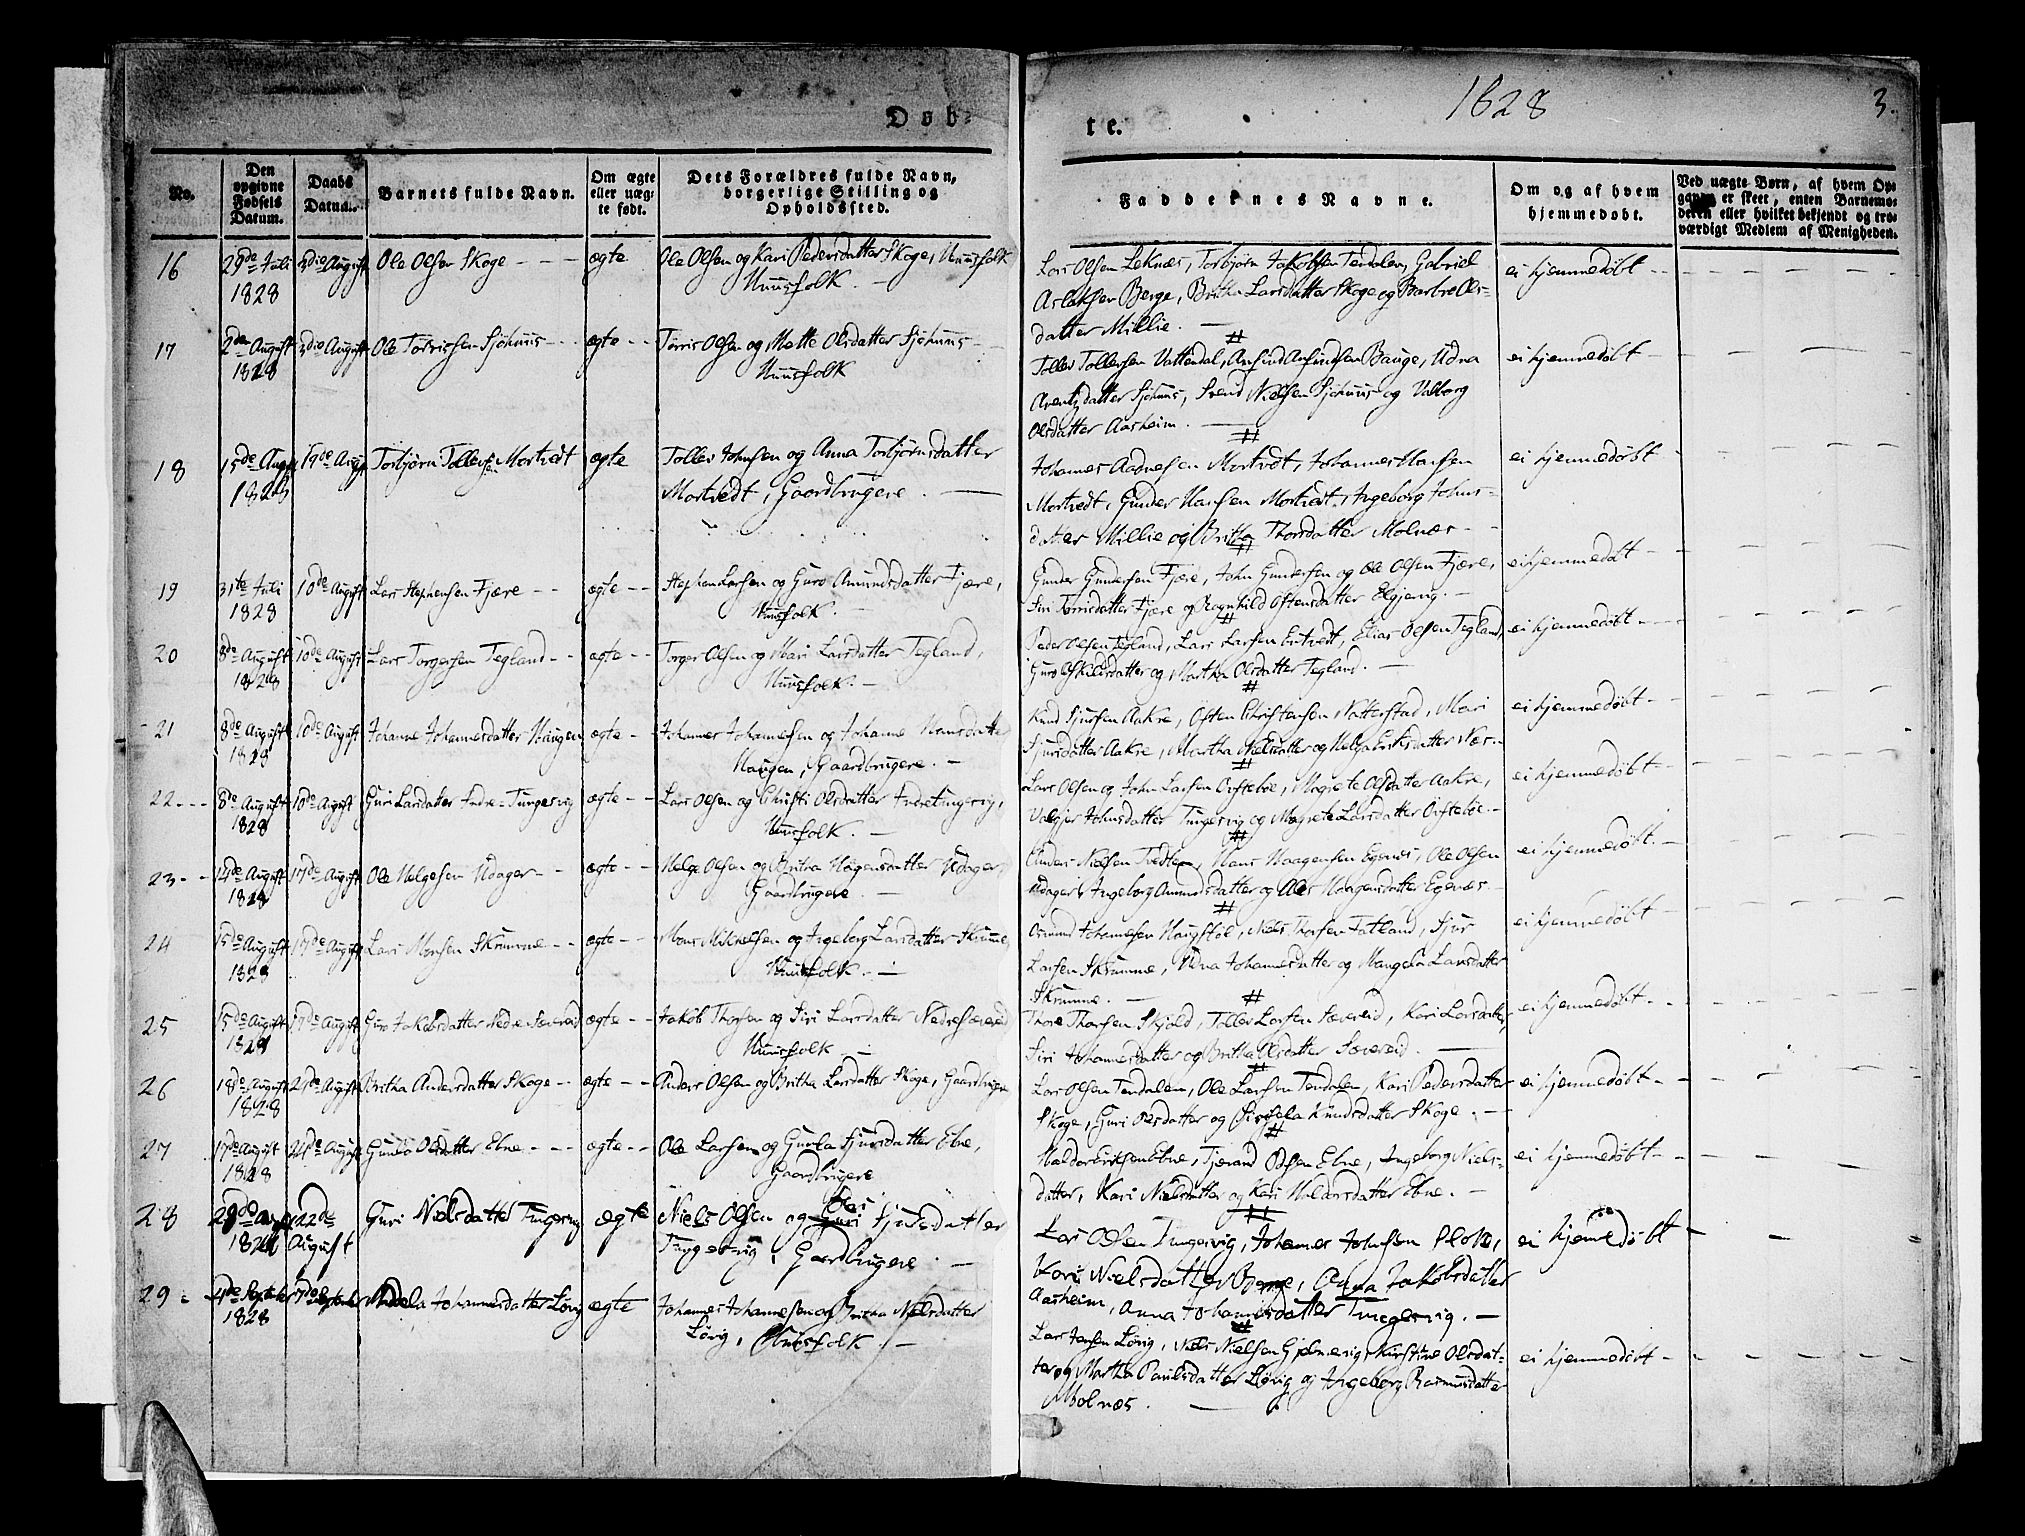 Døb-
te.
1828
3.
No.
Den opgivne Fødsels Datum.
Daabs Datum.
Barnets fulde Navn.
Om ægte eller uæg-te født.
Dets Forældres fulde Navn, borgerlige Stilling og Opholdssted.
Faddernes Navne.
Om og af hvem hjemmedøbt.
Ved uægte Børn, af hvem Op-
er skeet, enten Barnemo-
deren eller hvilket bekjendt og tro-
værdigt Medlem af Menigheden.
16
29de Juli
1828
3die August
Ole Olsen Skoge
ægte
Ole Olsen og Kari Pedersdatter Skoge, Huusfolk
Huusfolk.
Lars Olsen Leknæs, Torbjörn Jakobsen Tendalen, Gabriel
Aslaksen Berge, Britha Larsdatter Skoge og Barbro Ols-
datter Millie.
ei hjemmedøbt
17
2den August
1828
3die August
Ole Torrissen Sjöhuus
ægte
Törris Olsen og Mette Olsdatter Sjöhuus
Huusfolk
Tollev Tollevsen Vattendal, Amund Amundsen Bauge, Udna
Arentzdatter Sjöhuus, Svend Nielsen Sjöhuus og Valborg
Olsdatter Aasheim.
ei hjemmedøbt
18
15de Aug
1828
19de Aug
Torbjörn Tollevsen Mortvedt
ægte
Tollev Johnsen og Anna Torbjörnsdatter
Mortvedt, Gaardbrugere.
Johannes Aadnesen Mortvedt, Johannes Hansen
Mortvedt, Gunder Hansen Mortvedt, Ingeborg Johns-
datter Millie og Britha Thorsdatter Molnæs
ei hjemmedøbt
19
31te Juli
1828
10de August
Lars Stephensen Fjære
ægte
Stephen Larsen og Guro Amundsdatter Fjære,
Huusfolk.
Gunder Gundersen Fjære, John Gundersen og Ole Olsen Fjære,
Siri Torrisdatter Fjære og Ragnhild Ostensdatter
ei hjemmedøbt
20
8de August
1828
10de August
Lars Torgersen Tegland
ægte
Torger Olsen og Mari Larsdatter Tegland,
Huusfolk.
Peder Olsen Tegland, Lars Larsen Entvedt, Elias Olsen Tegland,
Guro Eskildsdatter og Martha Olsdatter Tegland.
ei hjemmedøbt
21
8de August
1828
10de August
Johanne Johannesdatter Haugen
ægte
Johannes Johannesen og Johanne Hansdatter
Haugen, Gaardbrugere.
Knud Sjursen Aakre, Osten Christensen Natterstad, Mari
Sjursdatter Aakre, Martha Nielsdatter og Helga Eriksdatter Næs.
ei hjemmedøbt
22
8de August
1828
10de August
Guri Larsdatter Indre-Tungesvig
ægte
Lars Olsen og Christi Olsdatter Indre Tungesvig,
Huusfolk.
Lars Olsen og John Larsen Østebøe, Magrete Olsdatter Aakre,
Valgjer Johnsdatter Tungesvig og Magrete Larsdatter
ei hjemmedøbt
23
14de August
1828
17de August
Ole Helgesen Udager
ægte
Helge Olsen og Britha Haagensdatter Udager,
Gaardbrugere.
Anders Nielsen Tvedten, Hans Haagensen Egenæs, Ole Olsen
Udager, Ingeborg Amundsdatter og Haagensdatter Egenæs.
ei hjemmedøbt.
24
15de August
1828
17de August
Lars Monsen Skrumme
ægte
Mons Mikkelsen og Ingeborg Larsdatter Skrumme,
Huusfolk.
Osmund Johannesen Haugstöl, Niels Thorsen Fatland, Sjur
Larsen Skrumme, Udna Johannesdatter og Mangela Larsdatter
Skrumme.
ei hjemmedøbt
25
15de August
1828
17de August
Guro Jakobsdatter Nedre Sævereid
ægte
Jakob Thorsen og Siri Larsdatter Nedresævereid
Huusfolk.
Thore Thorsen Skjold, Tollev Larsen Sævereid, Kari Larsdatter,
Siri Johannesdatter og Britha Olsdatter Sævereid.
ei hjemmedøbt
26
18de August
1828
24de August
Britha Andersdatter Skoge
ægte
Anders Olsen og Britha Larsdatter Skoge, Gaardbrugere
Lars Olsen Tendalen, Ole Larsen Tendalen, Kari Pedersdatter
Skoge, Guri Olsdatter og Sissela Knudsdatter Skoge.
ei hjemmedøbt
27
17de August
1828
24de August
Gunla Olsdatter Ebne
ægte
Ole Larsen og Gunla Sjursdatter Ebne,
Gaardbrugere
Haldor Eriksen Ebne, Tjerand Olsen Ebne, Ingeborg Niels-
datter, Kari Nielsdatter og Kari Haldorsdatter Ebne.
ei hjemmedøbt
28
22de
August
Guri Nielsdatter Tungesvig
ægte
Niels Olsen og Guri Sjursdatter
Tungesvig, Gaardbrugere.
Lars Olsen Tungesvig, Johannes Johnsen
Kari Nielsdatter, Anna Jakobsdatter
Aasheim, Anna Johannesdatter Tungesvig.
ei hjemmedøbt
29
1828
Johannesdatter Lövig
ægte
Johannes Johannesen og Britha Nielsdatter
Lövig, Huusfolk.
Lars Jensen Lövig, Niels Nielsen Kirstine Olsdat-
ter og Martha Paulsdatter Lövig og Ingeborg Rasmusdatter
Molnæs.
ei hjemmedöbt